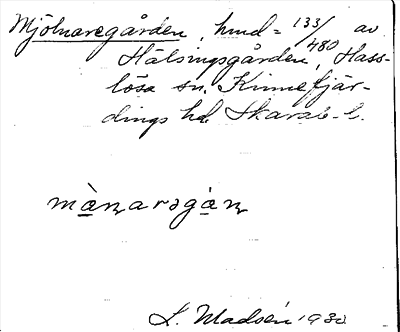 Mjölnaregården, hmd = 133/480 av
Hälsingsgården, Hass-
lösa sn. Kinnefjär-
dings hd Skarab. l.
L. Madsén 1930